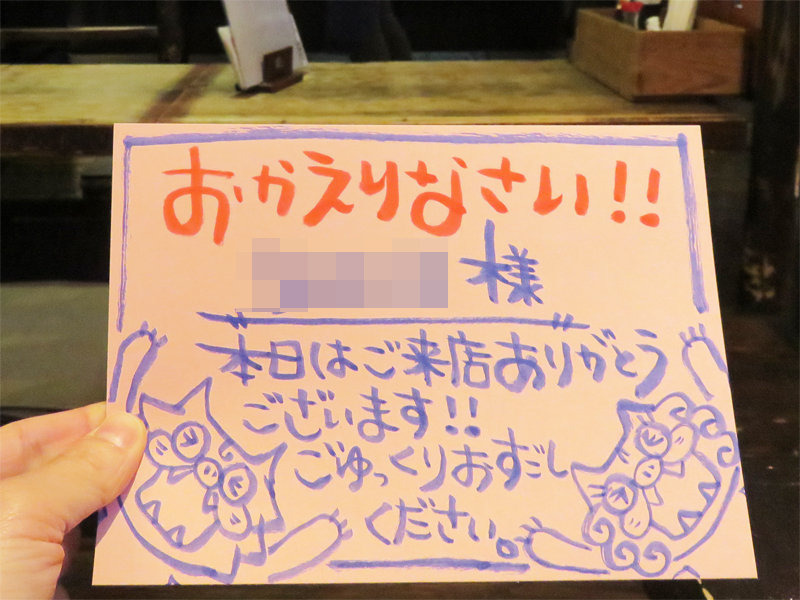 おかえりなさい!!
様
本日はご来店ありがとう
ございます!!
ごゆっくりおすだし
ください。